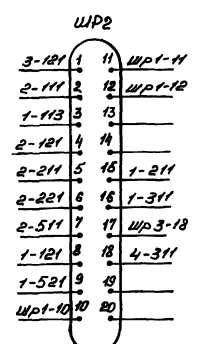 ШР2
3-121 1 11 ШР1-11
2-111 2 12 ШР1-12
1-113 3 13
2-121 4 14
2-211 5 15 1-211
2-221 6 16 1-311
2-511 7 17 ШР3-18
1-121 8 18 4-311
1-521 9 19
ШР1-10 10 20